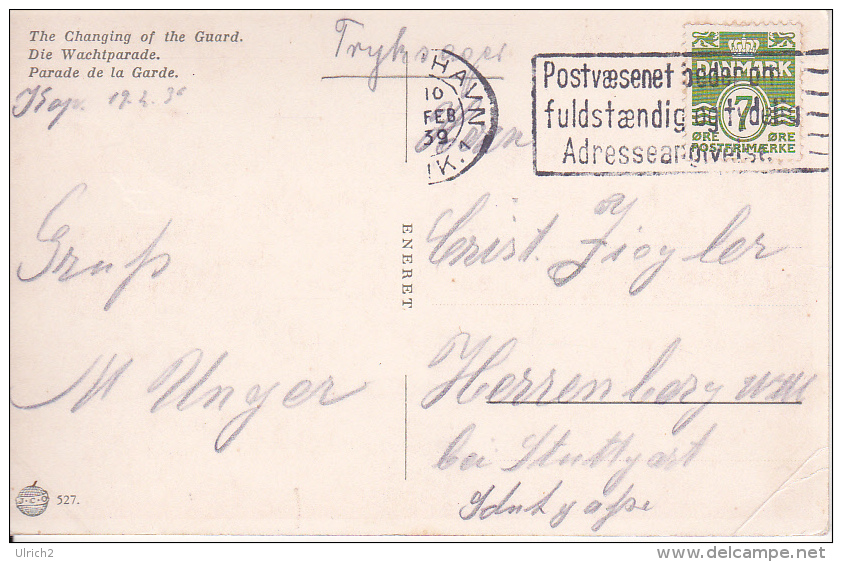 The Changing of the Guard.
Die Wachtparade.
Parade de la Garde.
Tryksager
HAVN
10
FEB
39
K.
Postvæsenet beder om
fuldstændig og tydelig
Adresseangivelse.
DANMARK
7
ØRE ØRE
POSTFRIMÆRKE
Herrn
Gruß
M Unger
ENERET
Christ. Ziegler
Herrenberg
bei Stuttgart
527.
Ulrich2
www.delcampe.net